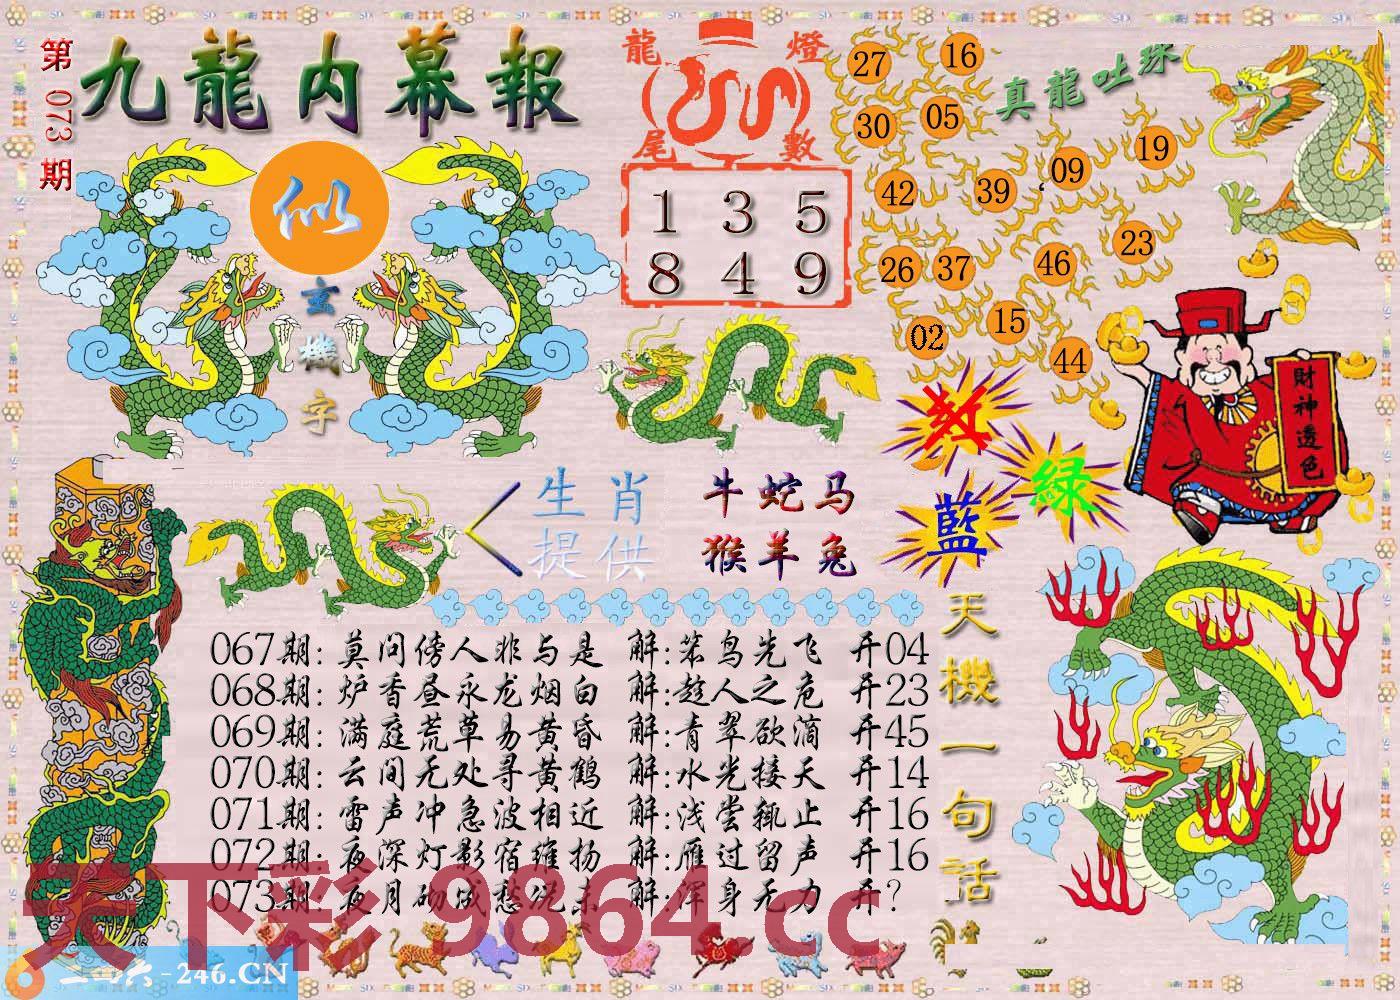 第073期
九龍内幕報
似
玄機字
龍燈
尾數
1 3 5
8 4 9
真龍吐珠
27 16
30 05
42 39 09 19
26 37 46 23
02 15 44
財神透色
紅
緑
藍
生肖
提供
牛蛇马
猴羊兔
天機一句话
067期:莫问傍人非与是 解:笨鸟先飞 开04
068期:炉香昼永龙烟白 解:趁人之危 开23
069期:满庭荒草易黄昏 解:青翠欲滴 开45
070期:云间无处寻黄鹤 解:水光接天 开14
071期:雷声冲急波相近 解:浅尝辄止 开16
072期:夜深灯影宿维扬 解:雁过留声 开16
073期:夜月砌成愁况未 解:浑身无力 开?
天下彩 9864.cc
二四六-246.CN